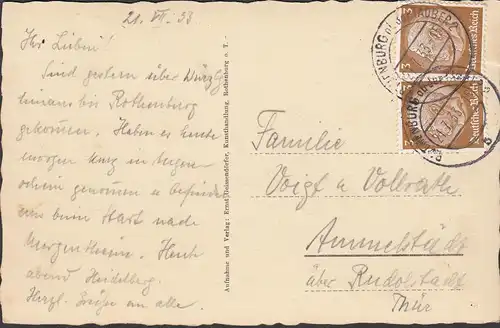 21. VII. 33
Ihr Lieben!
Sind gestern über Würzbg
hinaus bis Rothenburg
gekommen. Haben es heute
morgen kurz in Augen-
schein genommen u. befinden
uns beim Start nach
Mergentheim. Heute
abend Heidelberg.
Herzl. Grüße an alle.
Aufnahme und Verlag: Ernst Geissendörfer, Kunsthandlung, Rothenburg o. T.
Familie
Voigt u Vollrath
Ammelstädt
über Rudolstadt
Thür
3 Deutsches Reich
3 Deutsches Reich
ROTHENBURG o. d. TAUBER